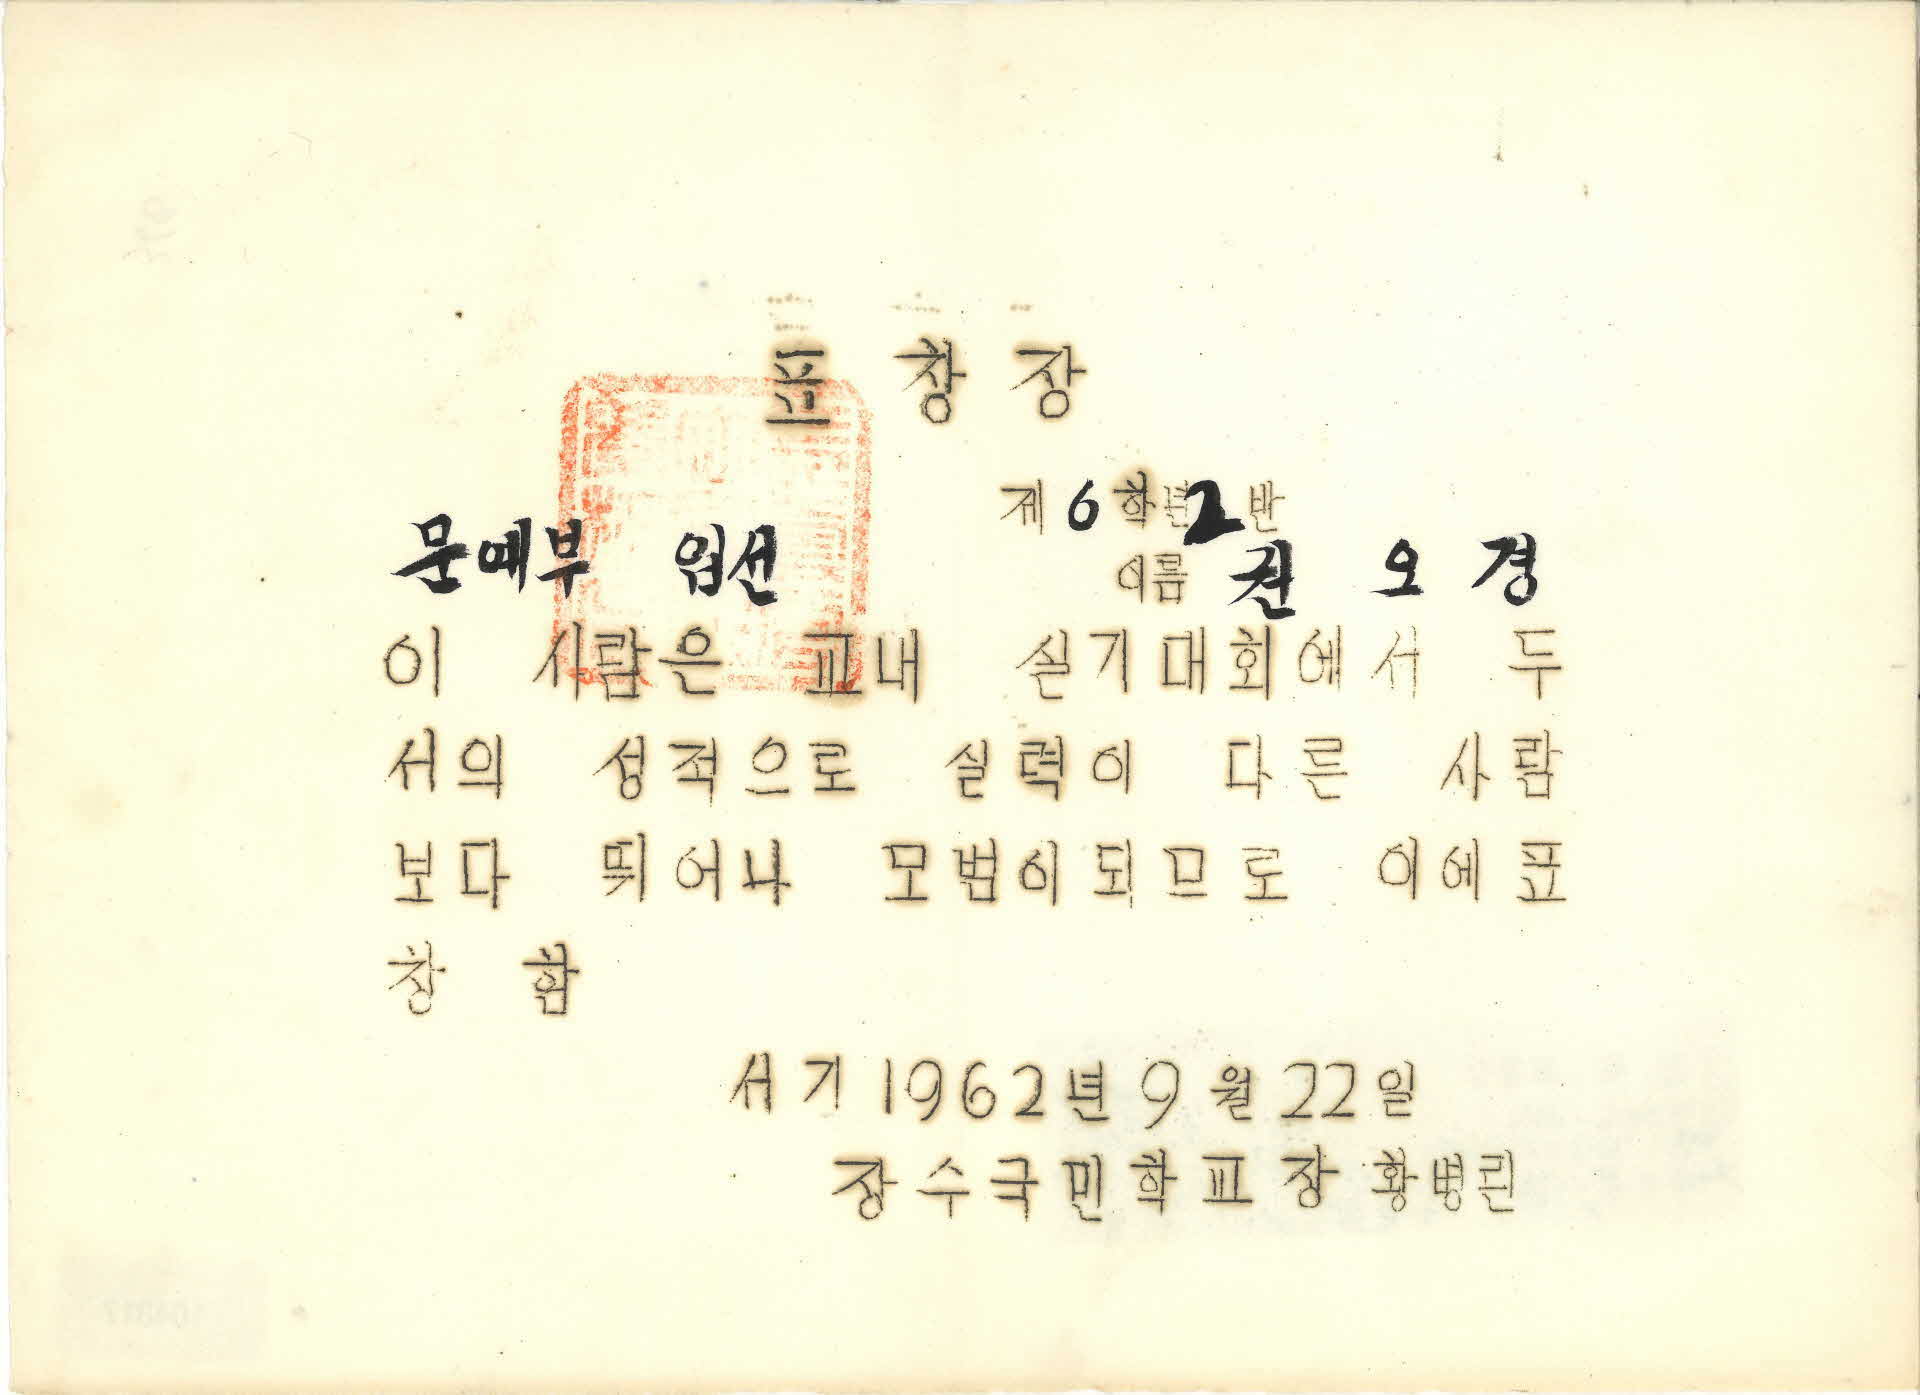 표창장
제6학년2반
문예부 입선 이름 권오경
이 사람은 교내 실기대회에서 두
서의 성적으로 실력이 다른 사람
보다 뛰어나 모범이되므로 이에표
창 함
서기 1962년 9월 22일
장수국민학교장 황병린